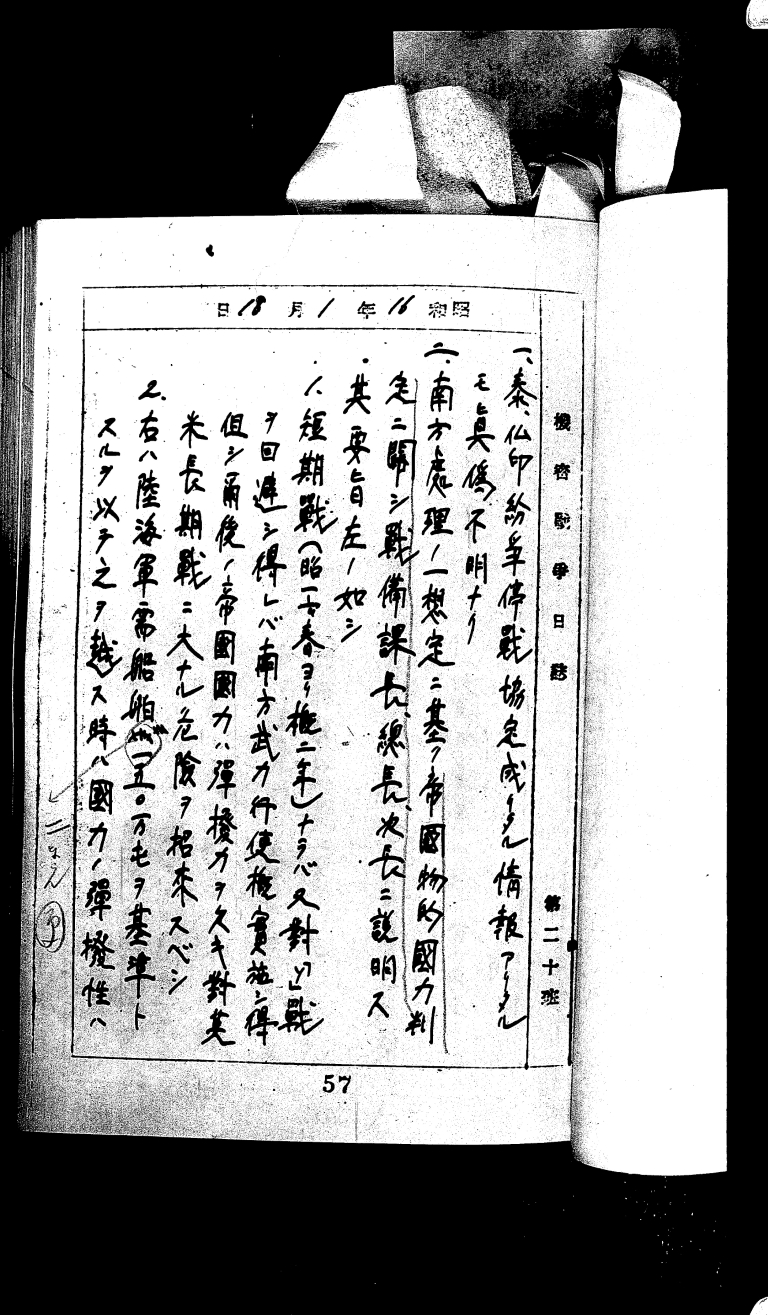 機密戰爭日誌　第二十班
昭和16年1月18日
一、泰、仏印紛爭停戰協定成リタル情報アリタル
モ眞僞不明ナリ
二、南方處理ノ一想定ニ基ク帝國物的國力判
定ニ關シ戰備課長、總長、次長ニ說明ス
其要旨左ノ如シ
1、短期戰（昭一六春ヨリ概二年）ナラバ又對「ソ」戰
ヲ回避シ得レバ南方武力行使概實施シ得
但シ爾後ノ帝國國力ハ彈撥力ヲ欠キ對英
米長期戰ニ大ナル危險ヲ招來スベシ
2、右ハ陸海軍需船舶一五〇万屯ヲ基準ト
スルヲ以テ之ヲ越ス時ハ國力ノ彈撥性ハ
57